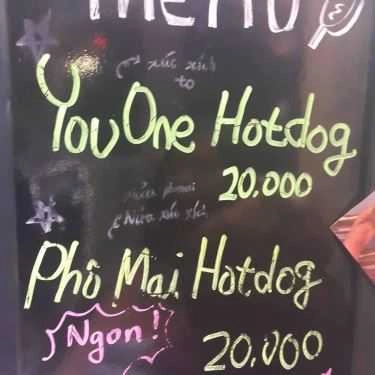 MENU
xúc xích
to
YouOne Hotdog
20.000
nửa phomai
nửa xúc xích
Phô Mai Hotdog
Ngon!
20,000